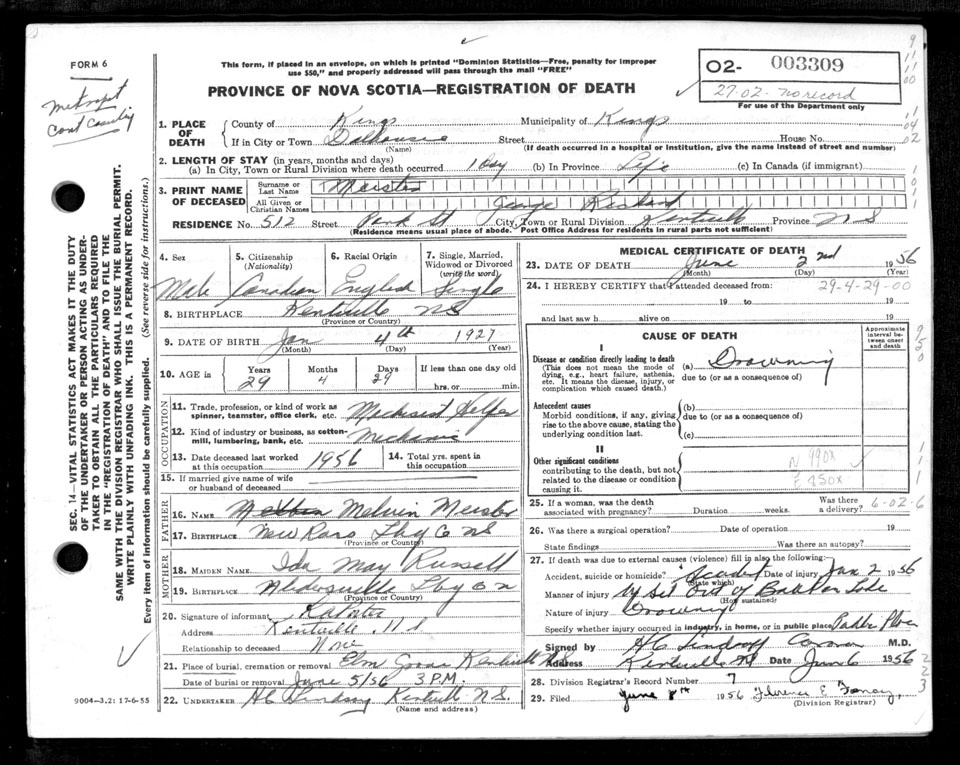 FORM 6
This form, if placed in an envelope, on which is printed "Dominion Statistics—Free, penalty for improper
use $50," and properly addressed will pass through the mail "FREE"
PROVINCE OF NOVA SCOTIA—REGISTRATION OF DEATH
02- 003309
27-02- no record
For use of the Department only
1. PLACE OF DEATH { County of Kings Municipality of Kings
If in City or Town Dalhousie Street House No.
(Name) (If death occurred in a hospital or institution, give the name instead of street and number)
2. LENGTH OF STAY (in years, months and days)
(a) In City, Town or Rural Division where death occurred 1 day (b) In Province Life (c) In Canada (if immigrant)
3. PRINT NAME OF DECEASED { Surname or Last Name Meister
All Given or Christian Names George Richard
RESIDENCE No. 512 Street Park St City, Town or Rural Division Kentville Province N S
(Residence means usual place of abode. Post Office Address for residents in rural parts not sufficient)
SEC. 14—VITAL STATISTICS ACT MAKES IT THE DUTY
OF THE UNDERTAKER OR PERSON ACTING AS UNDER-
TAKER TO OBTAIN ALL THE PARTICULARS REQUIRED
IN THE "REGISTRATION OF DEATH" AND TO FILE THE
SAME WITH THE DIVISION REGISTRAR WHO SHALL ISSUE THE BURIAL PERMIT.
WRITE PLAINLY WITH UNFADING INK. THIS IS A PERMANENT RECORD.
Every item of information should be carefully supplied. (See reverse side for instructions.)
4. Sex 5. Citizenship (Nationality) 6. Racial Origin 7. Single, Married, Widowed or Divorced (write the word)
Male Canadian English Single
8. BIRTHPLACE Kentville N S
(Province or Country)
9. DATE OF BIRTH Jan 4th 1927
(Month) (Day) (Year)
10. AGE in { Years Months Days If less than one day old
29 4 29 hrs. or min.
OCCUPATION
11. Trade, profession, or kind of work as spinner, teamster, office clerk, etc. Machinist Helper
12. Kind of industry or business, as cotton-mill, lumbering, bank, etc. Mechanic
13. Date deceased last worked at this occupation 1956 14. Total yrs. spent in this occupation
15. If married give name of wife or husband of deceased
FATHER
16. NAME Melvin Meister
17. BIRTHPLACE New Ross N S
(Province or Country)
MOTHER
18. MAIDEN NAME Ida May Russell
19. BIRTHPLACE Aldersville
(Province or Country)
20. Signature of informant
Address Kentville N S
Relationship to deceased None
21. Place of burial, cremation or removal Elm Grove Kentville N S
Date of burial or removal June 5/56 3 P.M.
22. UNDERTAKER Kentville N.S.
(Name and address)
9004—3.2: 17-6-55
MEDICAL CERTIFICATE OF DEATH
23. DATE OF DEATH June 2nd 1956
(Month) (Day) (Year)
24. I HEREBY CERTIFY that I attended deceased from: 29-4-29-00
19 to 19
and last saw h alive on 19
CAUSE OF DEATH
Approximate interval between onset and death
I
Disease or condition directly leading to death (a) Drowning
(This does not mean the mode of dying, e.g., heart failure, asthenia, etc. It means the disease, injury, or complication which caused death.) due to (or as a consequence of)
Antecedent causes (b)
Morbid conditions, if any, giving rise to the above cause, stating the underlying condition last. due to (or as a consequence of)
(c)
II
Other significant conditions
contributing to the death, but not related to the disease or condition causing it.
N 990X
E 850X
25. If a woman, was the death associated with pregnancy? Duration weeks. Was there a delivery? 6-02-6
26. Was there a surgical operation? Date of operation 19
State findings Was there an autopsy?
27. If death was due to external causes (violence) fill in also the following:
Accident, suicide or homicide? Accident Date of injury Jun 2 1956
(State which)
Manner of injury Upset Out of Boat on Lake
(How sustained)
Nature of injury Drowning
Specify whether injury occurred in industry, in home, or in public place Public Place
Signed by Coroner M.D.
Address Kentville N S Date Jun 6 1956
28. Division Registrar's Record Number 7
29. Filed June 8th 1956 Florence E.
(Division Registrar)